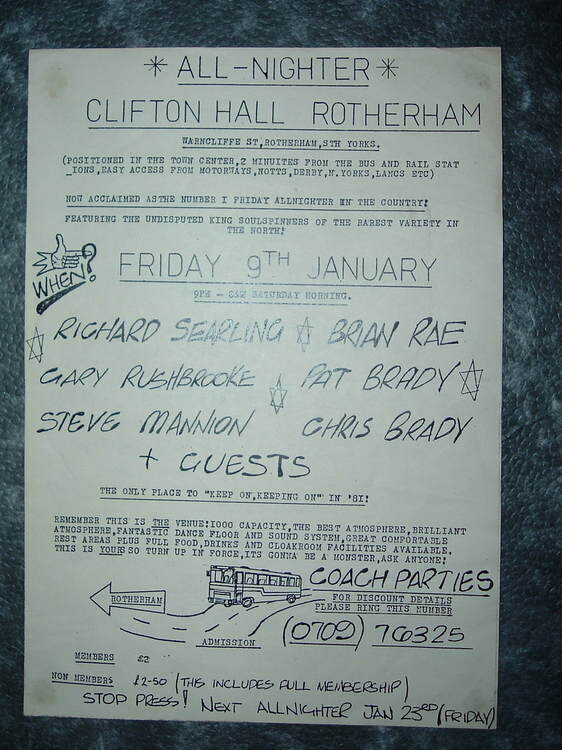 * ALL-NIGHTER *
CLIFTON HALL ROTHERHAM
WARNCLIFFE ST,ROTHERHAM,STH YORKS.
(POSITIONED IN THE TOWN CENTER,2 MINUITES FROM THE BUS AND RAIL STAT
_IONS,EASY ACCESS FROM MOTORWAYS,NOTTS,DERBY,N.YORKS,LANCS ETC)
NOW ACCLAIMED AS THE NUMBER I FRIDAY ALLNIGHTER IN THE COUNTRY!
FEATURING THE UNDISPUTED KING SOULSPINNERS OF THE RAREST VARIETY IN
THE NORTH!
WHEN?
FRIDAY 9TH JANUARY
9PM - SATURDAY MORNING.
RICHARD SEARLING BRIAN RAE
GARY RUSHBROOKE PAT BRADY
STEVE MANNION CHRIS BRADY
+ GUESTS
THE ONLY PLACE TO "KEEP ON,KEEPING ON" IN '81!
REMEMBER THIS IS THE VENUE!1000 CAPACITY,THE BEST ATMOSPHERE,BRILLIANT
ATMOSPHERE,FANTASTIC DANCE FLOOR AND SOUND SYSTEM,GREAT COMFORTABLE
REST AREAS PLUS FULL FOOD,DRINKS AND CLOAKROOM FACILITIES AVAILABLE.
THIS IS YOURS SO TURN UP IN FORCE,ITS GONNA BE A MONSTER,ASK ANYONE!
COACH PARTIES
ROTHERHAM
FOR DISCOUNT DETAILS
PLEASE RING THIS NUMBER
(0709) 76325
ADMISSION
MEMBERS £2
NON MEMBERS £2-50 (THIS INCLUDES FULL MEMBERSHIP)
STOP PRESS! NEXT ALLNIGHTER JAN 23RD (FRIDAY)